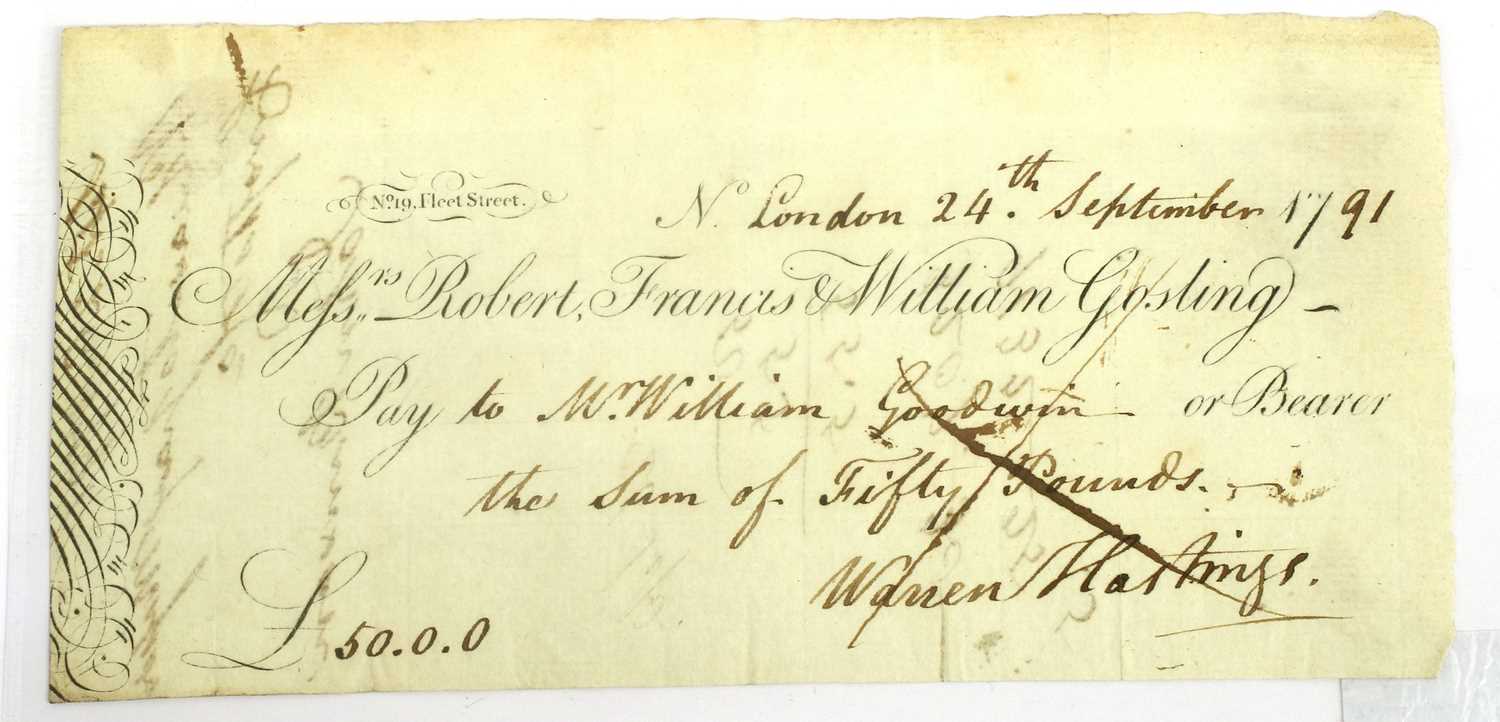 No. 19, Fleet Street.
No. London 24.th September 1791
Messrs. Robert, Francis & William Gosling
Pay to Mr. William Goodwin or Bearer
the Sum of Fifty Pounds.
Warren Hastings.
£ 50.0.0